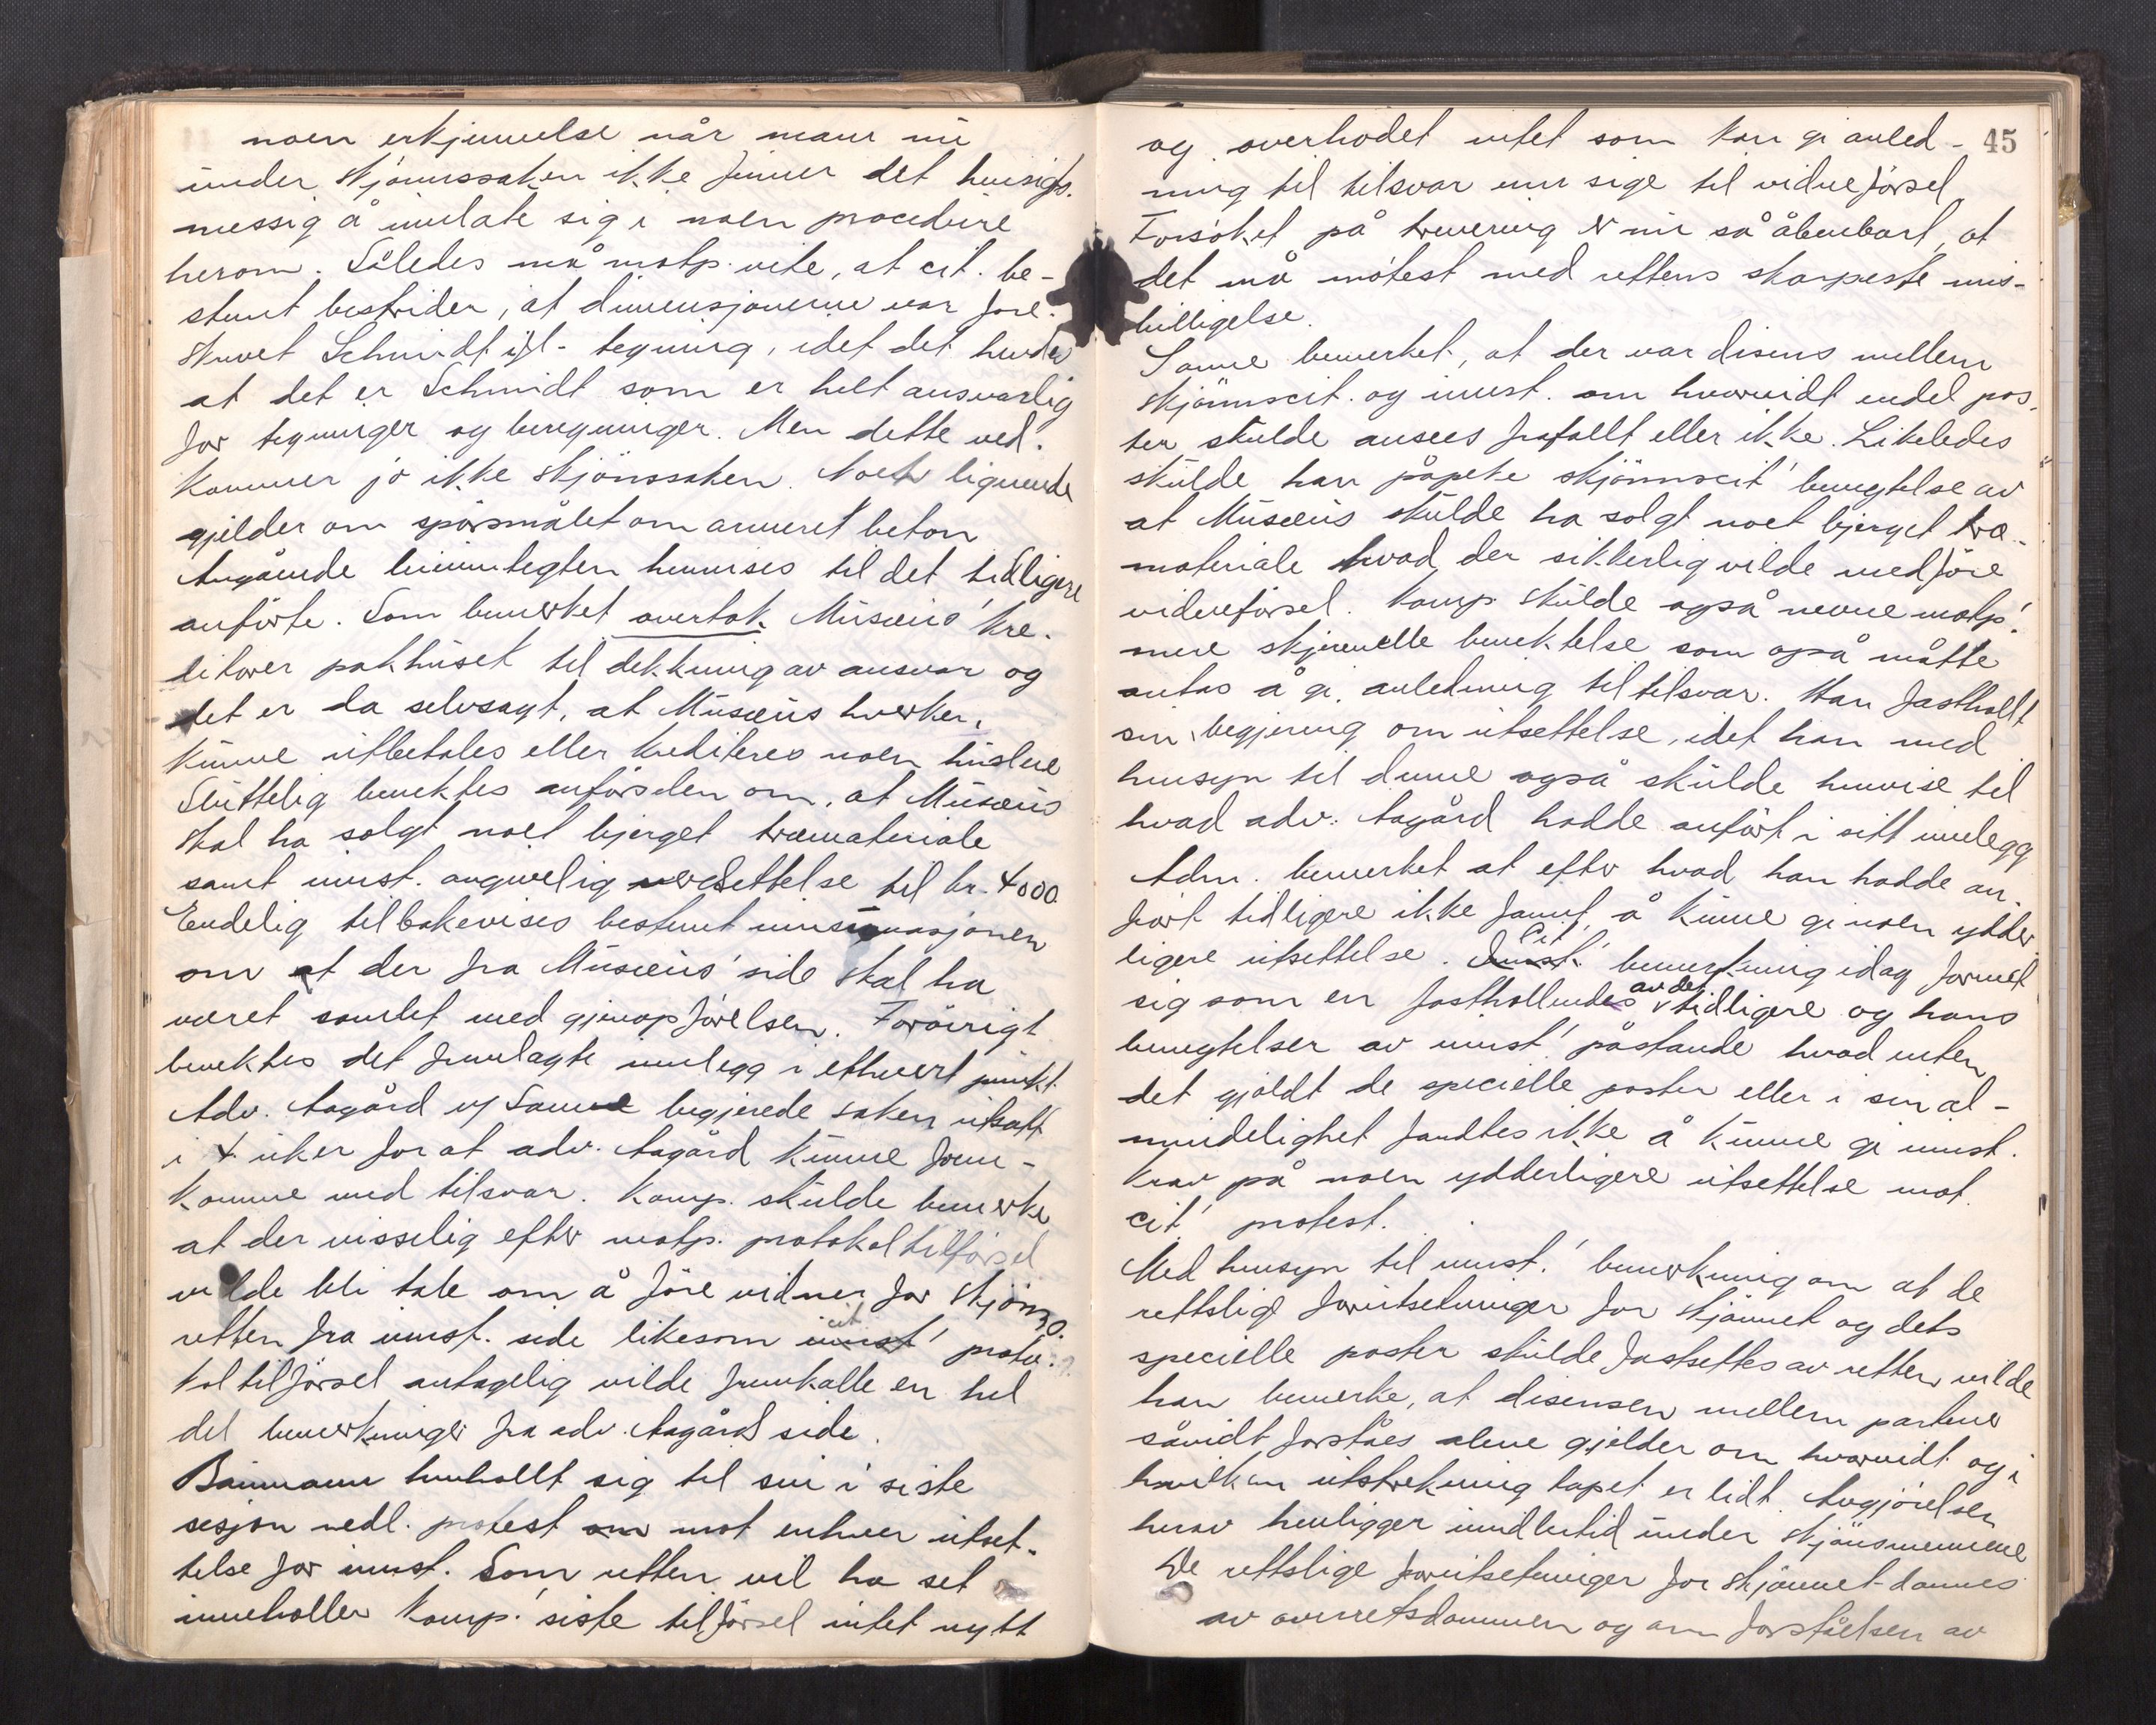 noen erkjennelse når man nu
under skjønnssaken ikke finner det hensigts-
messig å innlate sig i noen procedure
herom. Således må motp. vite, at cit. be-
stemt bestrider, at dimensjonerne var fore-
skrevet Schmidt ifl. tegning, idet det hender
at det er Schmidt som er helt ansvarlig
for tegninger og beregninger. Men dette ved-
kommer jo ikke skjønssaken. Noet lignende
gjelder om spørsmålet om armeret beton
Angående leieinntegten henvises til det tidligere
anførte. Som bemerket overtok Musæus' kre-
ditorer pakhuset til dekkning av ansvar og
det er da selvsagt, at Musæus hverken
kunne utbetales eller krediteres noen husleie
Sluttelig benektes anførselen om, at Musæus
skal ha solgt noet bjerget træmateriale
samt innst. angivelig verdsettelse til kr. 4000
Endelig tilbakevises bestemt insinuasjonen
om at der fra Musæus' side skal ha
været somlet med gjenopførelsen. Forøvrigt
benektes det fremlagte innlegg i ethvert punkt.
Adv. Aagård v/ Sanne begjerede saken utsatt
i 4 uker for at adv. Aagård kunne frem-
komme med tilsvar. Komp. skulde bemerke
at der visselig efter motp. protokoltilførsel
vilde bli tale om å føre vidner for skjønns-
retten fra innst. side likesom innst' cit proto-
koltilførsel antagelig vilde fremkalle en hel
del bemerkninger fra adv. Aagårds side.
Baumann henhollt sig til sin i siste
sesjon nedl. protest om mot enhver utset-
telse for innst. Som retten vil ha set
inneholler komp.' siste tilførsel intet nytt
45
og overhodet intet som kan gi anled-
ning til tilsvar enn sige til vidneførsel
Forsøket på trenering er nu så åbenbart, at
det må møtest med rettens skarpeste mis-
billigelse.
Sanne bemerket, at der var disens mellem
skjønnscit. og innst. om hvorvidt endel pos-
ter skulde ansees frafallt eller ikke. Likeledes
skulde han påpeke skjønnscit' benegtelse av
at Musæus skulde ha solgt noet bjerget træ-
materiale hvad der sikkerlig vilde medføre
vidneførsel. Komp. skulde også nevne motp.'
mere skjenerelle benektelse som også måtte
antas å gi anledning til tilsvar. Han fasthollt
sin begjering om utsettelse, idet han med
hensyn til denne også skulde henvise til
hvad adv. Aagård hadde anført i sitt innlegg
Adm. bemerket at efter hvad han hadde an-
ført tidligere ikke fant å kunne gi noen ydder
ligere utsettelse. Innst.' Cit' bemerkning idag formet
sig som en fasthollendes av det tidligere og hans
benegtelser av innst' påstande hvad enten
det gjaldt de specielle poster eller i sin al-
mindelighet fandtes ikke å kunne gi innst.
krav på noen ydderligere utsettelse mot
cit' protest.
Med hensyn til innst.' bemerkning om at de
rettslige forutsetninger for skjønnet og dets
specielle poster skulde fastsettes av retten vilde
han bemerke, at disensen mellem partene
såvidt forståes alene gjelder om hvorvidt og i
hvilken utstrekning tapet er lidt. Avgjørelsen
herav henligger imidlertid under skjønsmennene
De rettslige forutsetninger for skjønnet dannes
av overretsdommen og om forståelsen av